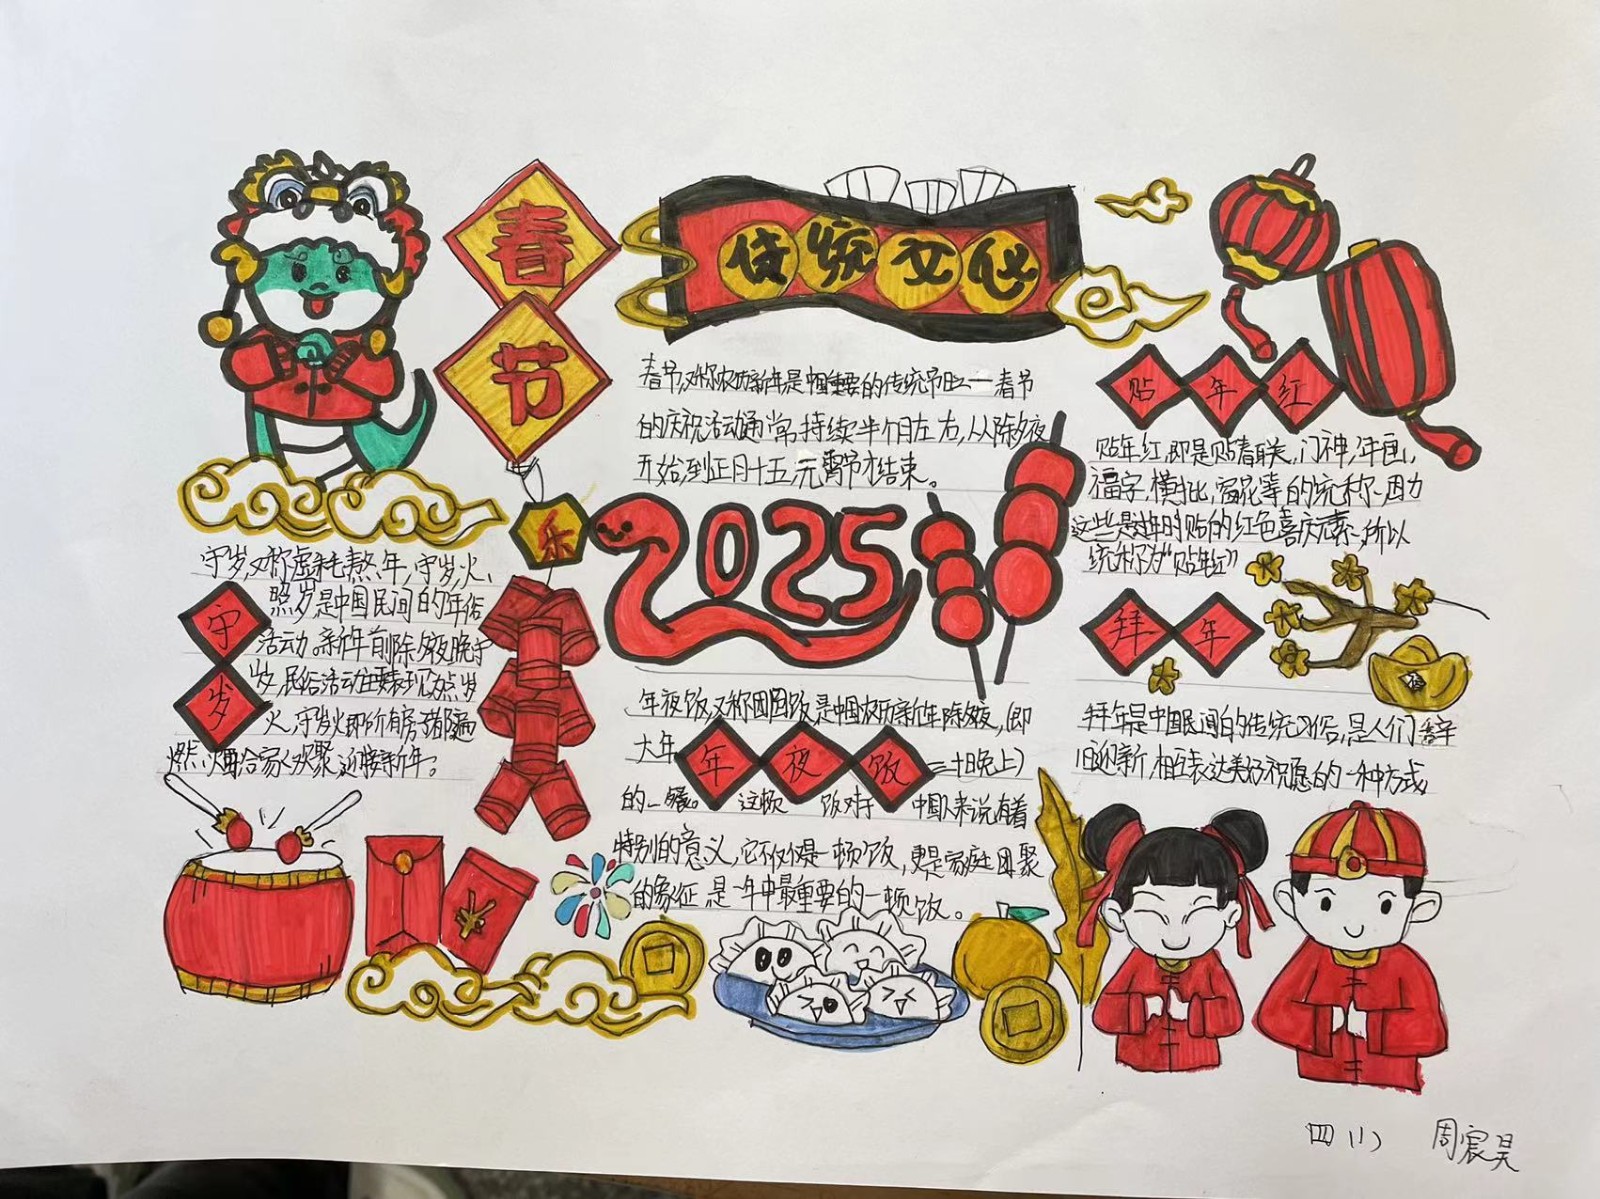 春
节
乐
传统文化
春节,又称农历新年是中国重要的传统节日——春节
的庆祝活动通常持续半个月左右,从除夕夜
开始,到正月十五,元宵节才结束。
2025
守岁
守岁,又称虚耗熬年,守岁,火、
照岁是中国民间的年俗
活动。新年前除夕夜晚守
岁,民俗活动主要表现为点岁
火,守岁火即所有房子都遍
燃,合家欢聚迎接新年。
年夜饭
年夜饭,又称团圆饭,是中国农历新年除夕夜,(即
大年三十晚上)
的一餐。这顿饭对于中国人来说有着
特别的意义,它不仅仅是一顿饭,更是家庭团聚
的象征,是一年中最重要的一顿饭。
贴年红
贴年红,即是贴春联,门神,年画,
福字,横批,窗花等的统称、因为
这些是过年时贴的红色喜庆元素,所以
统称为“贴年红”
拜年
拜年是中国民间的传统习俗,是人们辞
旧迎新,相互表达美好祝愿的一种方式
福
¥
四(1) 周宸昊